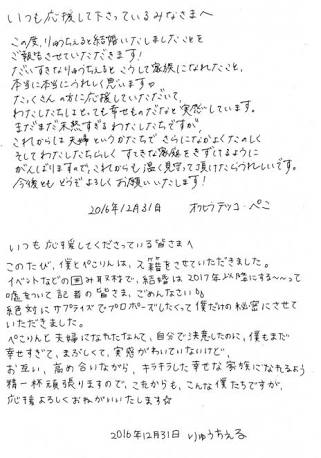 いつも応援して下さっているみなさまへ
この度、りゅうちぇると結婚いたしましたことを
ご報告させていただきます!
だいすきなりゅうちぇると こうして家族になれたこと、
本当に本当にうれしく思います
たくさんの方に応援していただいて、
わたしたちは とっても幸せものだなと実感しています。
まだまだ未熟すぎるわたしたちですが、
これからは夫婦というかたちで さらになかよくたのしく
そして わたしたちらしく すてきな家庭をきずけるように
がんばりますので、これからも温く見守って頂けたらうれしいです。
今後とも どうぞよろしくお願いいたします!
2016年12月31日 オクヒラテツコ・ぺこ
いつも応援してくださっている皆さまへ
このたび、僕とぺこりんは、入籍をさせていただきました。
イベントなどの囲み取材で、結婚は2017年以降にする〜〜って
嘘をついて記者の皆さま、ごめんなさい
絶対にサプライズでプロポーズしたくって僕だけの秘密にさせて
いただきました。
ぺこりんと夫婦になれたなんて、自分で決意したのに、僕もまだ
幸せすぎて、まぶしくて、実感がわいていないけど、
お互い、高め合いながら、キラキラした幸せな家族になれるよう
精一杯頑張りますので、これからも、こんな僕たちですが、
応援よろしくおねがいいたします☆
2016年12月31日 りゅうちぇる